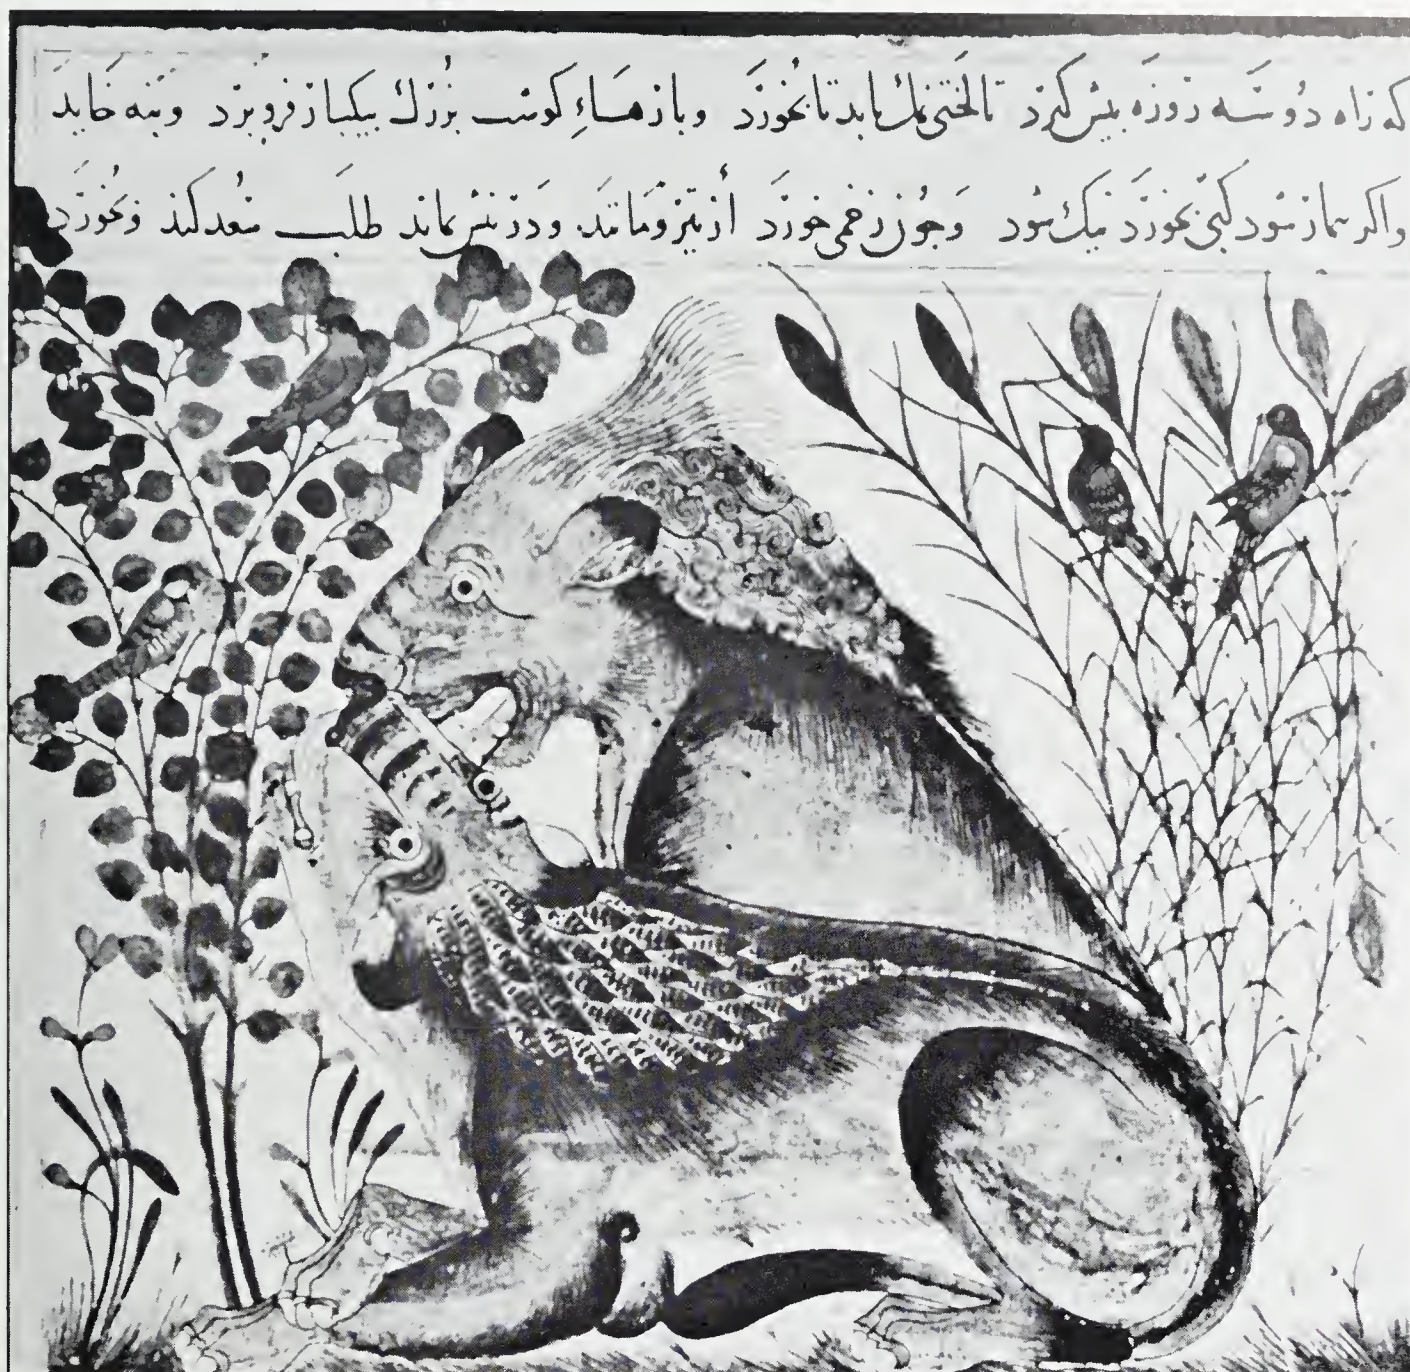 که راه دو سه روزه بیش کیرد تا لختی نمک یابد تا بخورد وبارهاءِ کوشت بزرک بیکبار فرو برد وبنه خاید
واکر بیمار شود کبی بخورد نیک شود وجون زخمی خورد از تیر و مانند ودر تنش بماند طلب سعد کند وبخورد